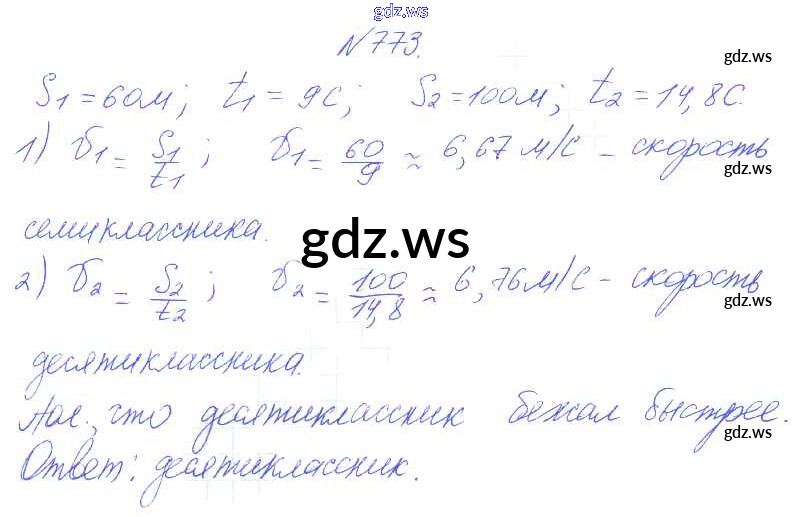 gdz.ws
N 773.
gdz.ws
S1 = 60м; t1 = 9с; S2 = 100м; t2 = 14,8с.
1) υ1 = S1/t1; υ1 = 60/9 ≈ 6,67 м/с – скорость
gdz.ws
семиклассника.
gdz.ws
2) υ2 = S2/t2; υ2 = 100/14,8 ≈ 6,76 м/с – скорость
gdz.ws
десятиклассника.
что десятиклассник бежал быстрее.
gdz.ws
Ответ: десятиклассник.